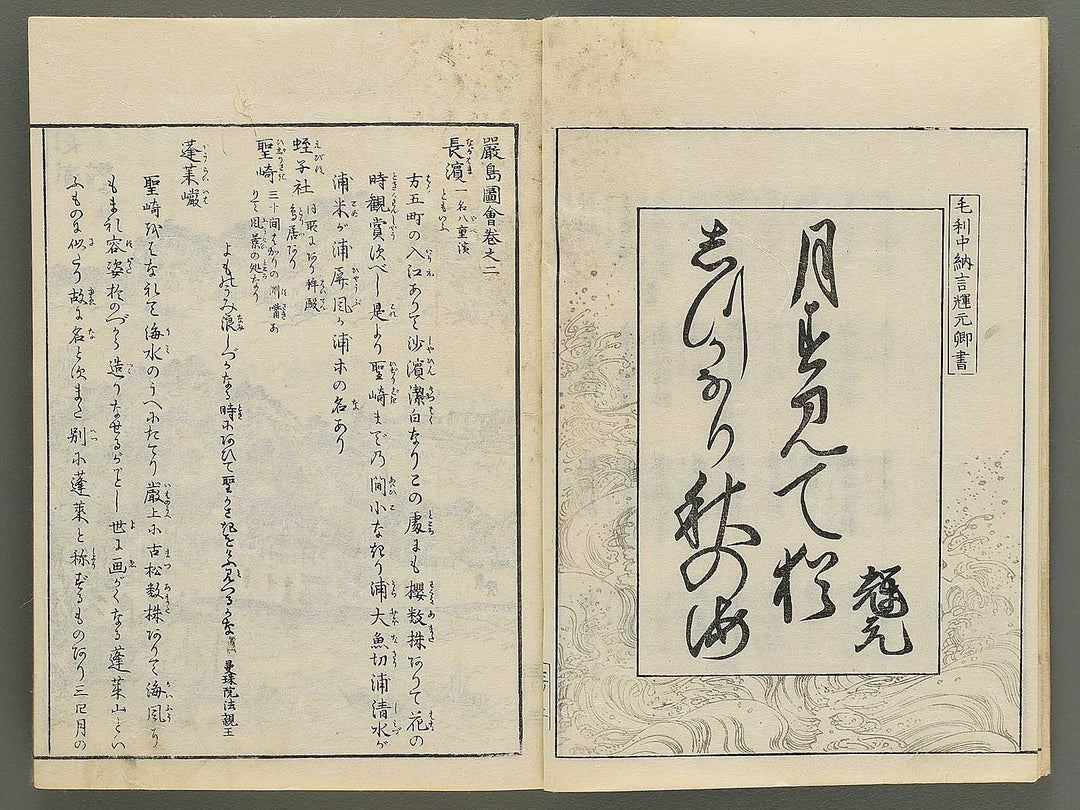 毛利中納言輝元卿書
輝元
月を見て猶
しづかなり秋の海
嚴島圖會卷之二
長濱 一名八重濱ともいふ
方五町の入江ありて沙濱潔白なりこの處にも櫻数株ありて花の
時観賞すべし是より聖崎までの間小なきり浦大魚切浦清水が
浦米が浦屏風が浦等の名あり
蛭子社 同所にあり拝殿鳥居あり
聖崎 三十間ばかりの洲嘴ありて風景の処なり
よものうみ浪しづかなる時にあひて聖がさきをけふ見つるかな 曼珠院法親王
蓬莱巖
聖崎をはなれて海水のうへにたてり巌上に古松数株ありて海風に
もまれ容姿おのづから造りなせるがごとし世に画がくなる蓬莱山とい
ふものに似たり故に名とすまた別に蓬莱と称ずるものあり三四月の